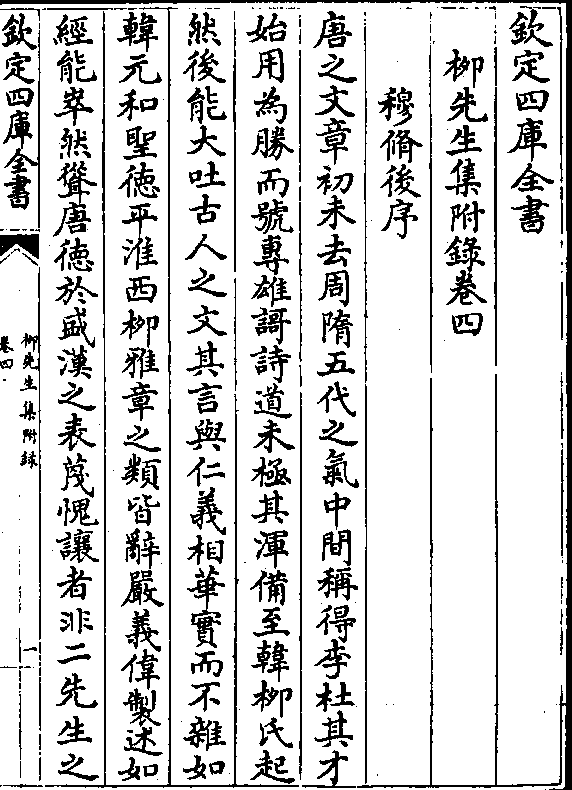 欽定四庫全書
柳先生集附錄卷四
穆脩後序
唐之文章初未去周隋五代之氣中間稱得李杜其才
始用為勝而號專雄謌詩道未極其渾備至韓柳氏起
然後能大吐古人之文其言與仁義相華實而不雜如
韓元和聖徳平淮西柳雅章之類皆辭嚴義偉製述如
經能崒然聳唐徳於盛漢之表蔑愧讓者非二先生之
欽定四庫全書
柳先生集附錄
卷四
一